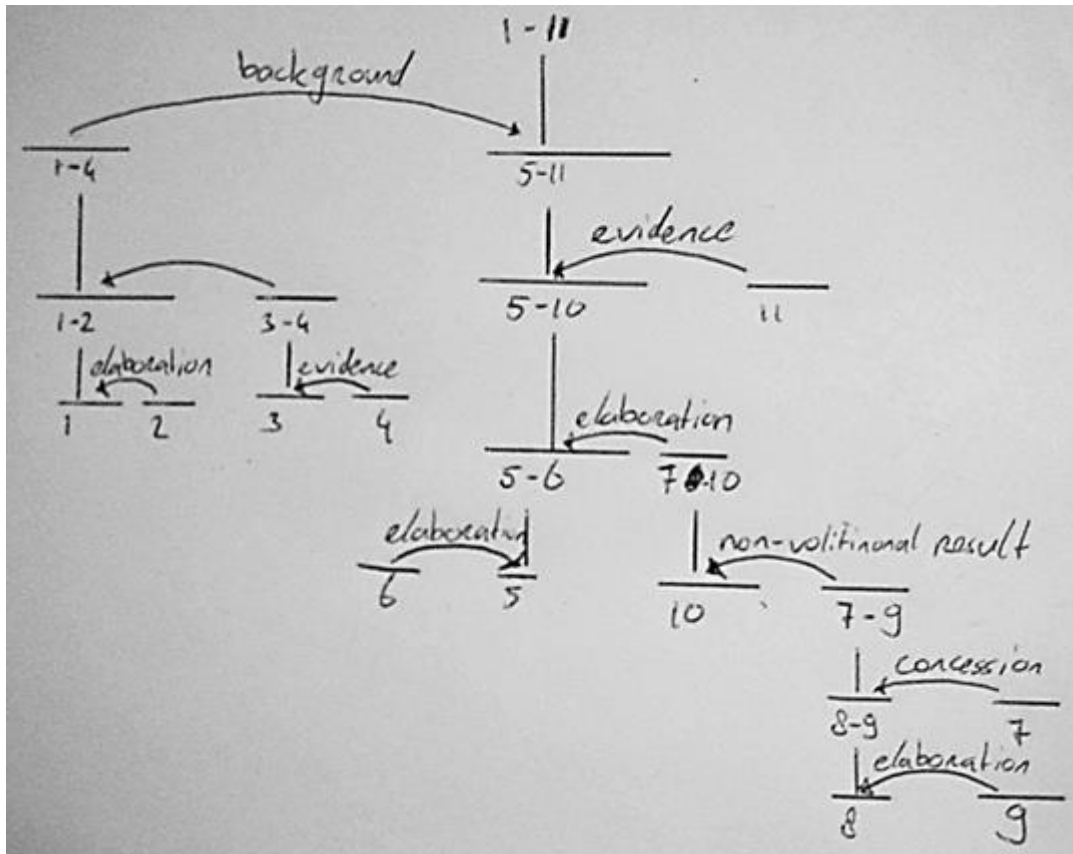 1-11
background
1-4 5-11
evidence
1-2 3-4 5-10 11
elaboration evidence
1 2 3 4
elaboration
5-6 7-10
elaboration non-volitinonal result
6 5 10 7-9
concession
8-9 7
elaboration
8 9